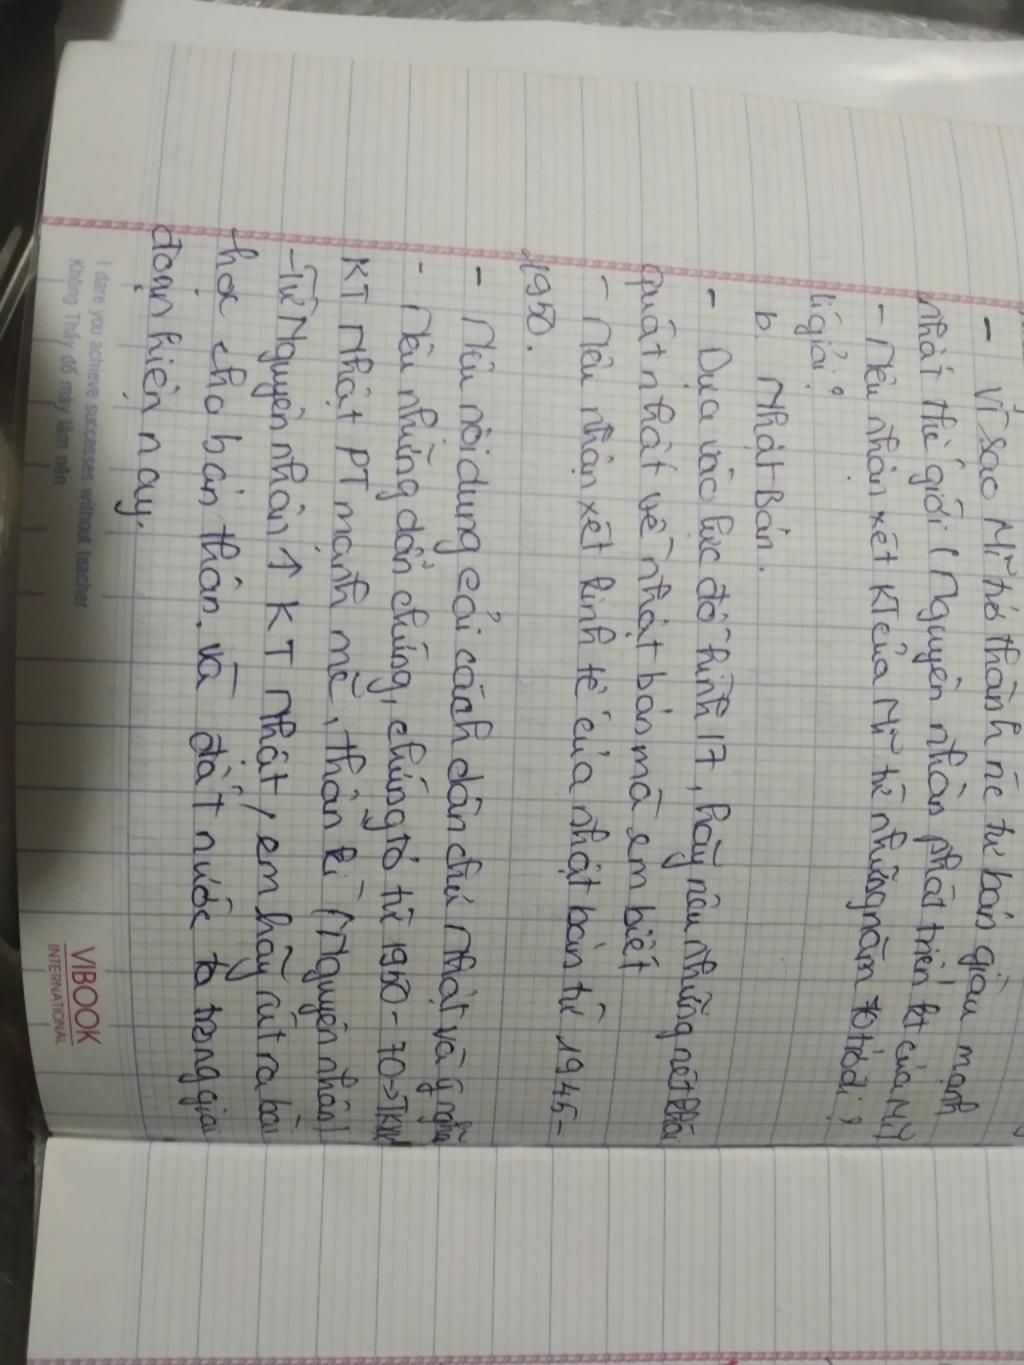 - Vì sao Mĩ trở thành nc tư bản giàu mạnh
nhất thế giới (Nguyên nhân phát triển kt của Mĩ)
- Nêu nhận xét KT của Mĩ từ những năm 70 trở đi?
lí giải?
b. Nhật Bản.
- Dựa vào lược đồ hình 17, hãy nêu những nét khái
quát nhất về nhật bản mà em biết
- Nêu nhận xét kinh tế của nhật bản từ 1945-
1950.
- Nêu nội dung cải cách dân chủ Nhật và ý nghĩa
- Nêu những dẫn chứng, chứng tỏ từ 1950-70->TKXX
KT Nhật PT mạnh mẽ, thần kì (Nguyên nhân)
- Từ Nguyên nhân ↑ KT Nhật, em hãy rút ra bài
học cho bản thân. và đất nước ta trong giai
đoạn hiện nay.
I dare you achieve successes without teacher
Không Thầy đố mày làm nên
VIBOOK
INTERNATIONAL